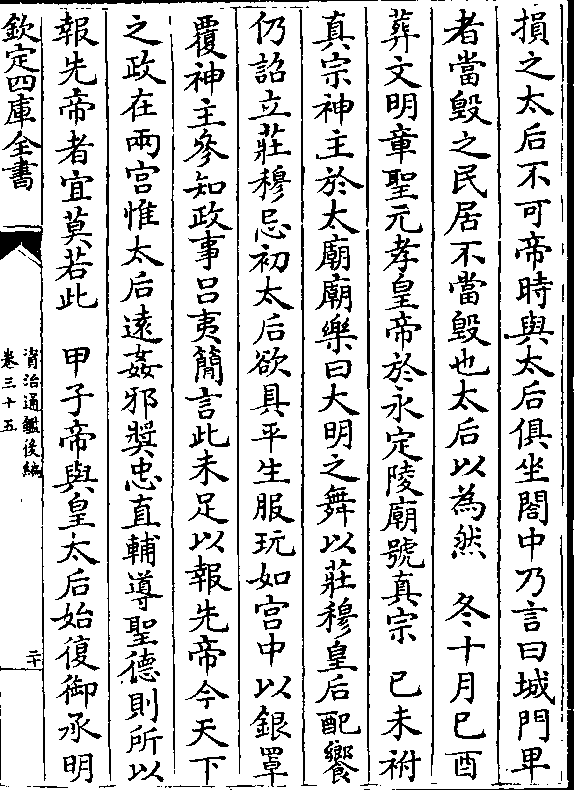 損之太后不可帝時與太后俱坐閤中乃言曰城門卑
者當毀之民居不當毀也太后以為然　冬十月己酉
葬文明章聖元孝皇帝於永定陵廟號真宗　己未祔
真宗神主於太廟廟樂曰大明之舞以莊穆皇后配饗
仍詔立莊穆忌初太后欲具平生服玩如宫中以銀罩
覆神主參知政事呂夷簡言此未足以報先帝今天下
之政在兩宫惟太后遠姦邪奬忠直輔導聖德則所以
報先帝者宜莫若此　甲子帝與皇太后始復御承明
欽定四庫全書
資治通鑑後編
卷三十五
二十